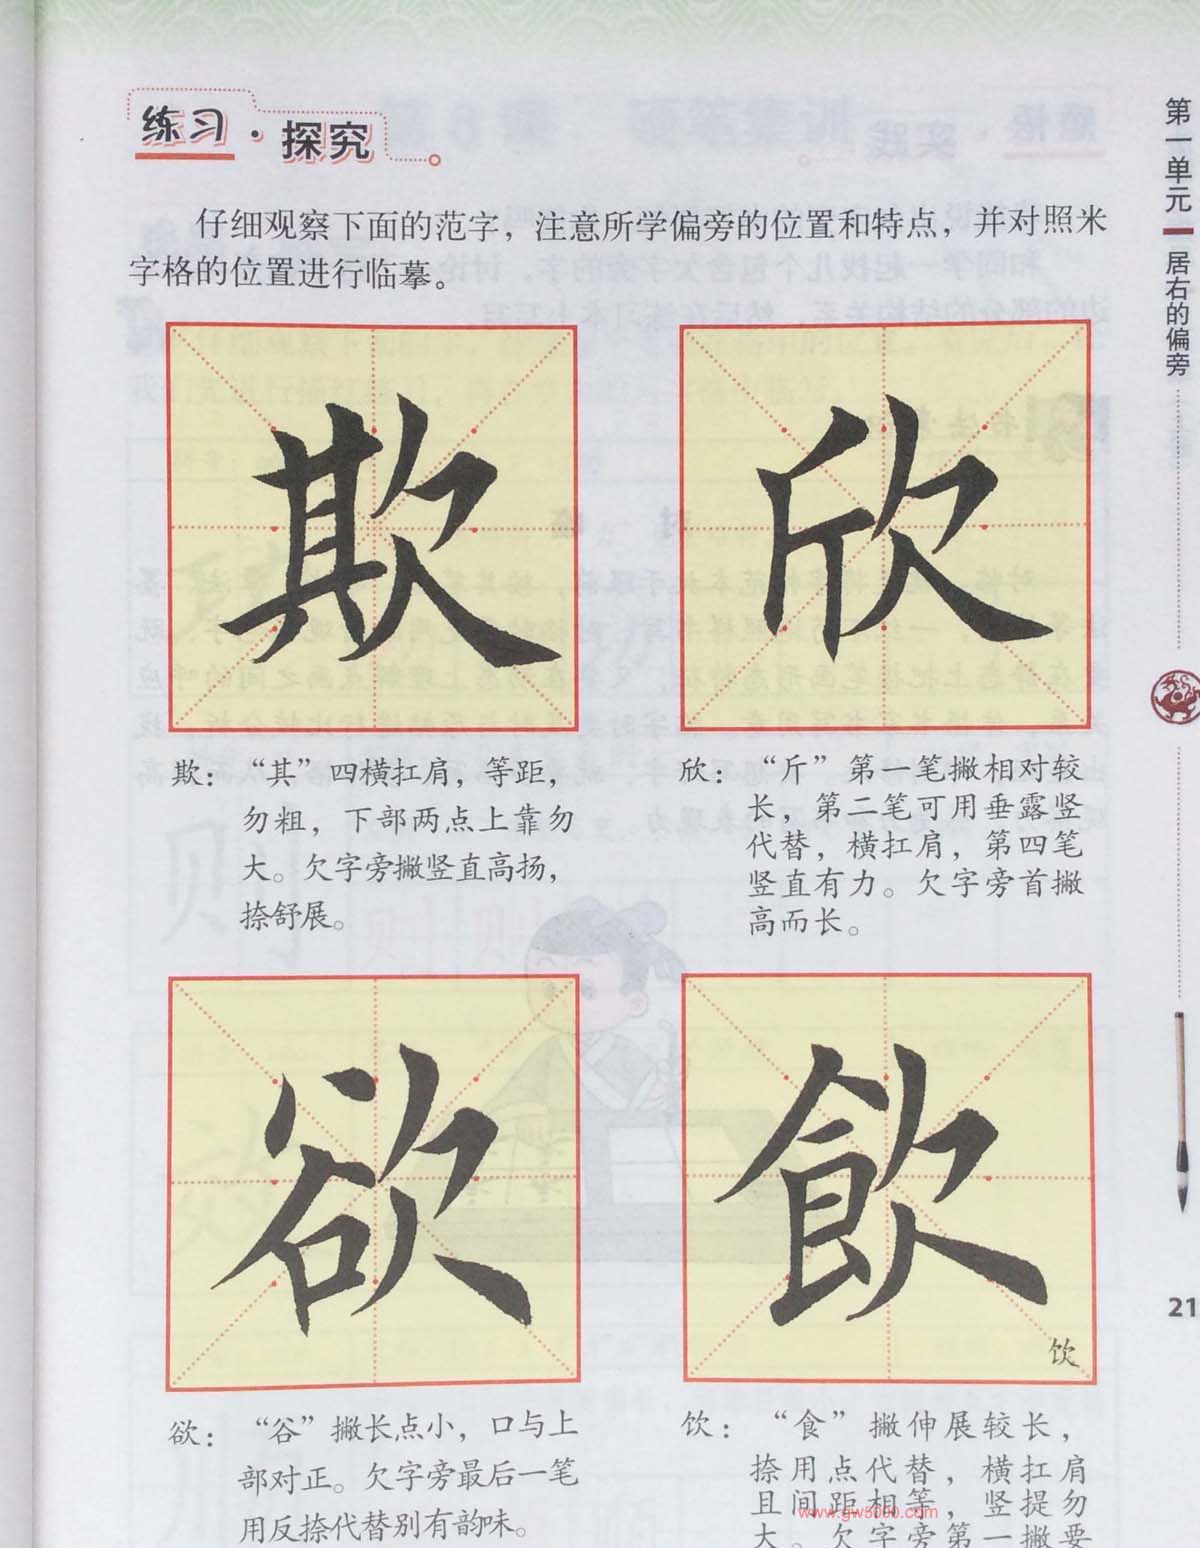 练习·探究
仔细观察下面的范字，注意所学偏旁的位置和特点，并对照米
字格的位置进行临摹。
欺
欣
欺：“其”四横扛肩，等距，
勿粗，下部两点上靠勿
大。欠字旁撇竖直高扬，
捺舒展。
欣：“斤”第一笔撇相对较
长，第二笔可用垂露竖
代替，横扛肩，第四笔
竖直有力。欠字旁首撇
高而长。
欲
飲
饮
欲：“谷”撇长点小，口与上
部对正。欠字旁最后一笔
用反捺代替别有韵味。
饮：“食”撇伸展较长，
捺用点代替，横扛肩
且间距相等，竖提勿
大。欠字旁第一撇要
www.gw5000.com
第一单元
居右的偏旁
21